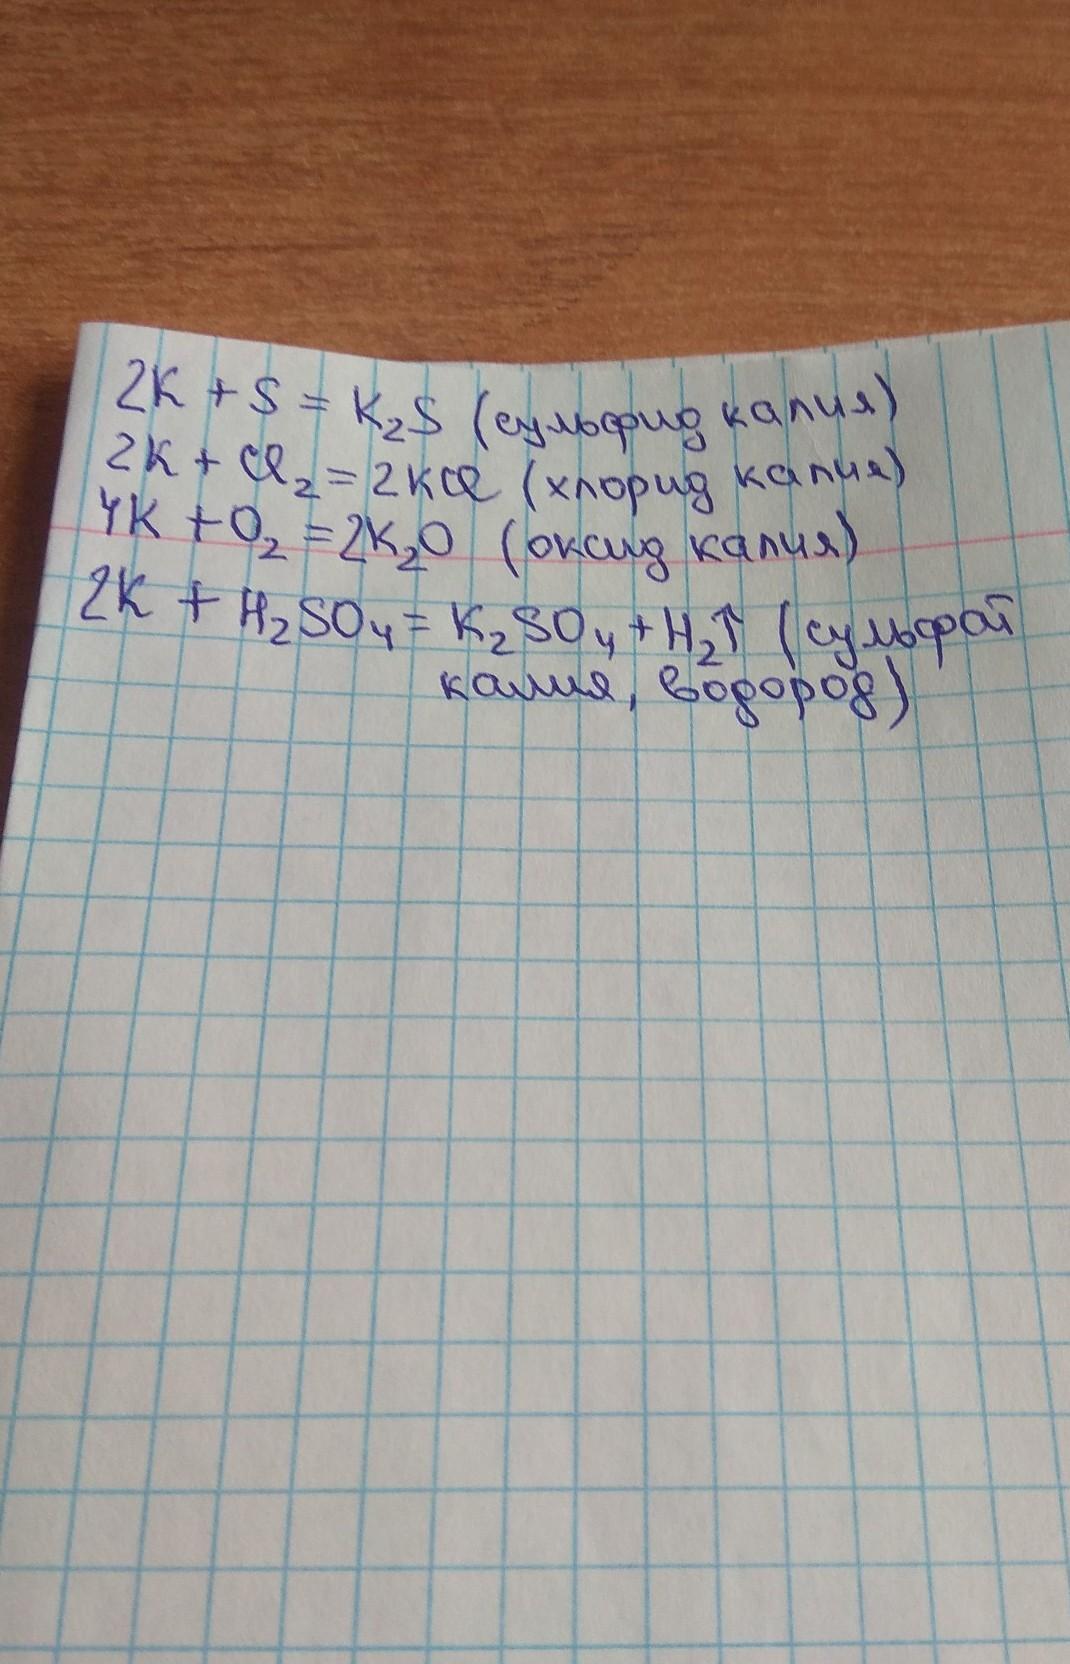 2K + S = K₂S (сульфид калия)
2K + Cl₂ = 2KCl (хлорид калия)
4K + O₂ = 2K₂O (оксид калия)
2K + H₂SO₄ = K₂SO₄ + H₂↑ (сульфат
калия, водород)